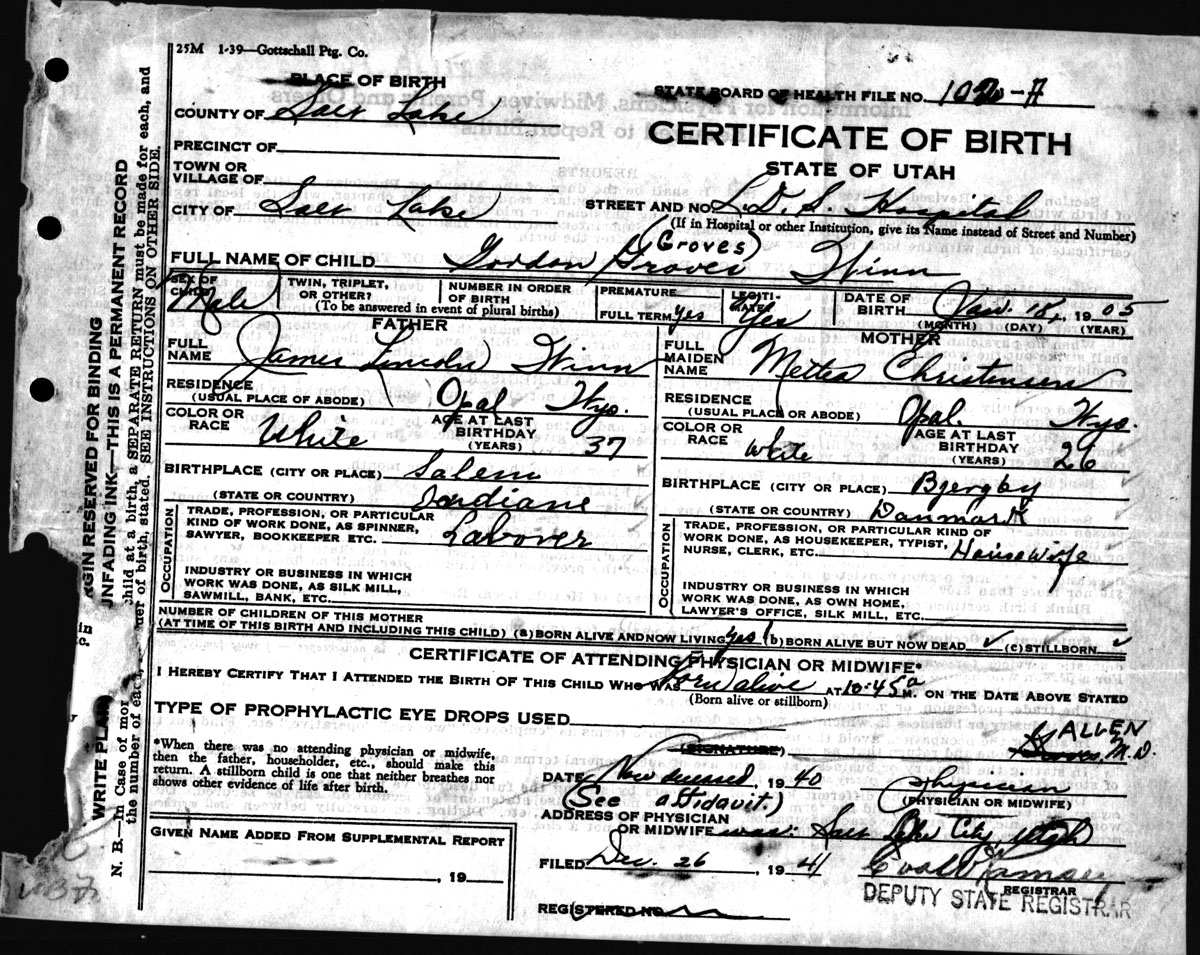 25M 1-39—Gottschall Ptg. Co.
PLACE OF BIRTH
STATE BOARD OF HEALTH FILE NO. 1020-A
COUNTY OF Salt Lake
CERTIFICATE OF BIRTH
PRECINCT OF
STATE OF UTAH
TOWN OR
VILLAGE OF
CITY OF Salt Lake
STREET AND NO. L.D.S. Hospital
(If in Hospital or other Institution, give its Name instead of Street and Number)
(Groves)
FULL NAME OF CHILD Gordon Groves Winn
SEX OF CHILD Male
TWIN, TRIPLET, OR OTHER?
NUMBER IN ORDER OF BIRTH
(To be answered in event of plural births)
PREMATURE
FULL TERM yes
LEGITIMATE? Yes
DATE OF BIRTH Jan. 18, 1905
(MONTH) (DAY) (YEAR)
FATHER
FULL NAME James Lincoln Winn
RESIDENCE (USUAL PLACE OF ABODE) Opal Wyo.
COLOR OR RACE White
AGE AT LAST BIRTHDAY (YEARS) 37
BIRTHPLACE (CITY OR PLACE) Salem
(STATE OR COUNTRY) Indiana
OCCUPATION
TRADE, PROFESSION, OR PARTICULAR
KIND OF WORK DONE, AS SPINNER,
SAWYER, BOOKKEEPER ETC. Laborer
INDUSTRY OR BUSINESS IN WHICH
WORK WAS DONE, AS SILK MILL,
SAWMILL, BANK, ETC.
MOTHER
FULL MAIDEN NAME Metta Christensen
RESIDENCE (USUAL PLACE OR ABODE) Opal. Wyo.
COLOR OR RACE White
AGE AT LAST BIRTHDAY (YEARS) 26
BIRTHPLACE (CITY OR PLACE) Bjergby
(STATE OR COUNTRY) Danmark
OCCUPATION
TRADE, PROFESSION, OR PARTICULAR KIND OF
WORK DONE, AS HOUSEKEEPER, TYPIST,
NURSE, CLERK, ETC. Housewife
INDUSTRY OR BUSINESS IN WHICH
WORK WAS DONE, AS OWN HOME,
LAWYER'S OFFICE, SILK MILL, ETC.
NUMBER OF CHILDREN OF THIS MOTHER
(AT TIME OF THIS BIRTH AND INCLUDING THIS CHILD) (a) BORN ALIVE AND NOW LIVING yes 1 (b) BORN ALIVE BUT NOW DEAD ✓ (c) STILLBORN ✓
CERTIFICATE OF ATTENDING PHYSICIAN OR MIDWIFE*
I HEREBY CERTIFY THAT I ATTENDED THE BIRTH OF THIS CHILD WHO WAS born alive AT 10-45 a M. ON THE DATE ABOVE STATED
(Born alive or stillborn)
TYPE OF PROPHYLACTIC EYE DROPS USED
*When there was no attending physician or midwife,
then the father, householder, etc., should make this
return. A stillborn child is one that neither breathes nor
shows other evidence of life after birth.
(SIGNATURE)
ALLEN
M.D.
DATE Now deceased, 1940
(See affidavit.)
Physician
(PHYSICIAN OR MIDWIFE)
ADDRESS OF PHYSICIAN
OR MIDWIFE was: Salt Lake City, Utah
GIVEN NAME ADDED FROM SUPPLEMENTAL REPORT
, 19
FILED Dec. 26, 1941
Ramsey
REGISTRAR
DEPUTY STATE REGISTRAR
REGISTERED NO.
RGIN RESERVED FOR BINDING
WRITE PLAIN
NFADING INK—THIS IS A PERMANENT RECORD
N. B.—In Case of mor
child at a birth, a SEPARATE RETURN must be made for each, and
the number of each,
er of birth, stated. SEE INSTRUCTIONS ON OTHER SIDE.